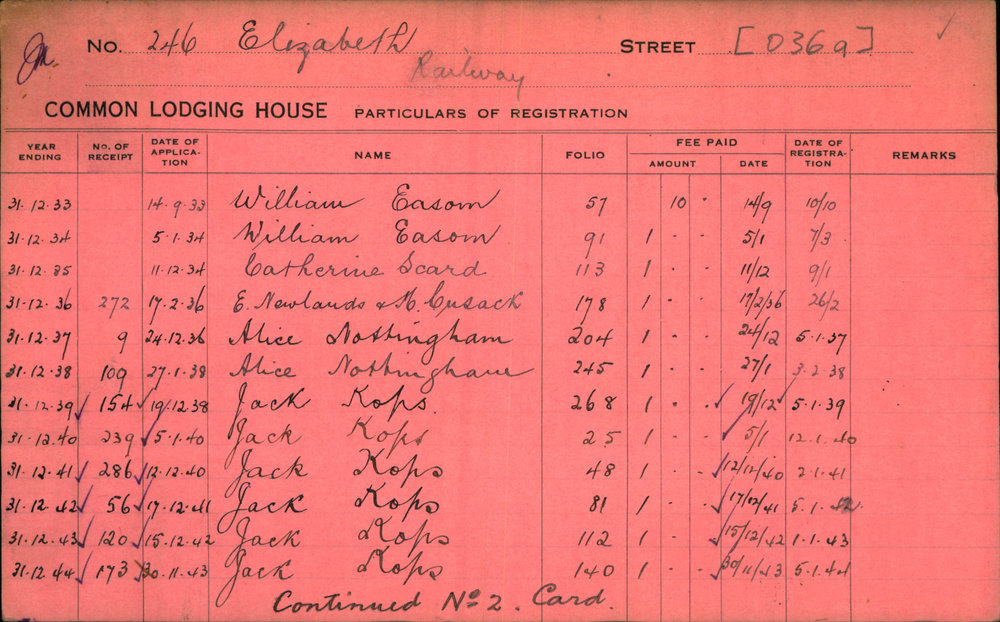 No. 246 Elizabeth STREET [036a]
Railway
COMMON LODGING HOUSE PARTICULARS OF REGISTRATION
YEAR ENDING No. OF RECEIPT DATE OF APPLICA-TION NAME FOLIO FEE PAID AMOUNT DATE DATE OF REGISTRA-TION REMARKS
31.12.33 14.9.33 William Easom 57 10 - 14/9 10/10
31.12.34 5.1.34 William Easom 91 1 - - 5/1 7/3
31.12.35 11.12.34 Catherine Scard 113 1 - - 11/12 9/1
31.12.36 272 17.2.36 E. Newlands & M. Cusack 178 1 - - 17/2/36 26/2
31.12.37 9 24.12.36 Alice Nottingham 204 1 - - 24/12 5.1.37
31.12.38 109 27.1.38 Alice Nottingham 245 1 - - 27/1 3.2.38
31.12.39 154 19.12.38 Jack Kops. 268 1 - - 19/12 5.1.39
31.12.40 239 5.1.40 Jack Kops 25 1 - - 5/1 12.1.40
31.12.41 286 12.12.40 Jack Kops 48 1 - - 12/12/40 2.1.41
31.12.42 56 17.12.41 Jack Kops 81 1 - - 17/12/41 5.1.42
31.12.43 120 15.12.42 Jack Kops 112 1 - - 15/12/42 1.1.43
31.12.44 173 30.11.43 Jack Kops 140 1 - - 30/11/43 5.1.44
Continued No 2. Card.